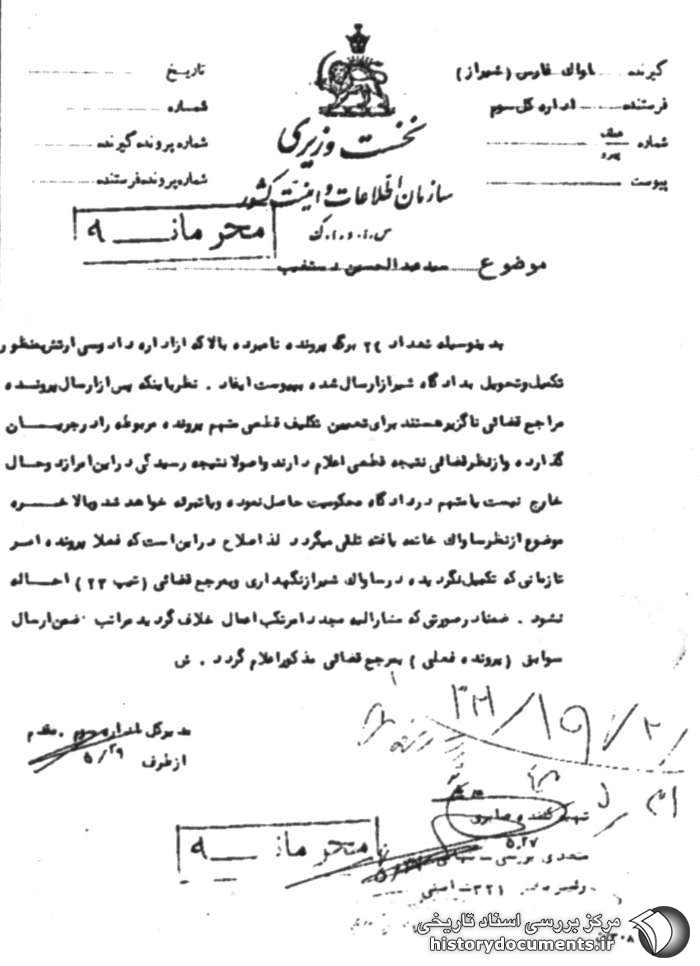 گیرنده ساواک فارس (شیراز)
فرستنده اداره کل سوم
شماره عطف پیرو
پیوست
تاریخ
شماره
شماره پرونده گیرنده
شماره پرونده فرستنده
نخست وزیری
سازمان اطلاعات و امنیت کشور
س.ا.و.ا.ک
محرمانه
موضوع سید عبدالحسین دستغیب
بدینوسیله تعداد ۲۴ برگ پرونده نامبرده بالا که از اداره دادرسی ارتش بمنظور
تکمیل و تحویل بدادگاه شیراز ارسال شده بپیوست ایفاد . نظر باینکه پس از ارسال پرونده
مراجع قضائی ناگزیر هستند برای تعیین تکلیف قطعی متهم پرونده مربوطه را در جریان
گذارده و از نظر قضائی نتیجه قطعی اعلام دارند و اصولا نتیجه رسیدگی در این امر از دو حال
خارج نیست یا متهم در دادگاه محکومیت حاصل نموده و یا تبرئه خواهد شد و بالاخره
موضوع از نظر ساواک خاتمه یافته تلقی میگردد لذا صلاح در این است که فعلا پرونده امر
تا زمانی که تکمیل نگردیده در ساواک شیراز نگهداری و بمرجع قضائی (تیپ ۲۳) احاله
نشود . ضمنا در صورتی که مشارالیه مجددا مرتکب اعمال خلاف گردید مراتب ضمن ارسال
سوابق (پرونده فعلی) بمرجع قضائی مذکور اعلام گردد . ش
مدیرکل اداره سوم . مقدم
از طرف ۵/۲۹
۳۲۱
محرمانه
مرکز بررسی اسناد تاریخی
historydocuments.ir